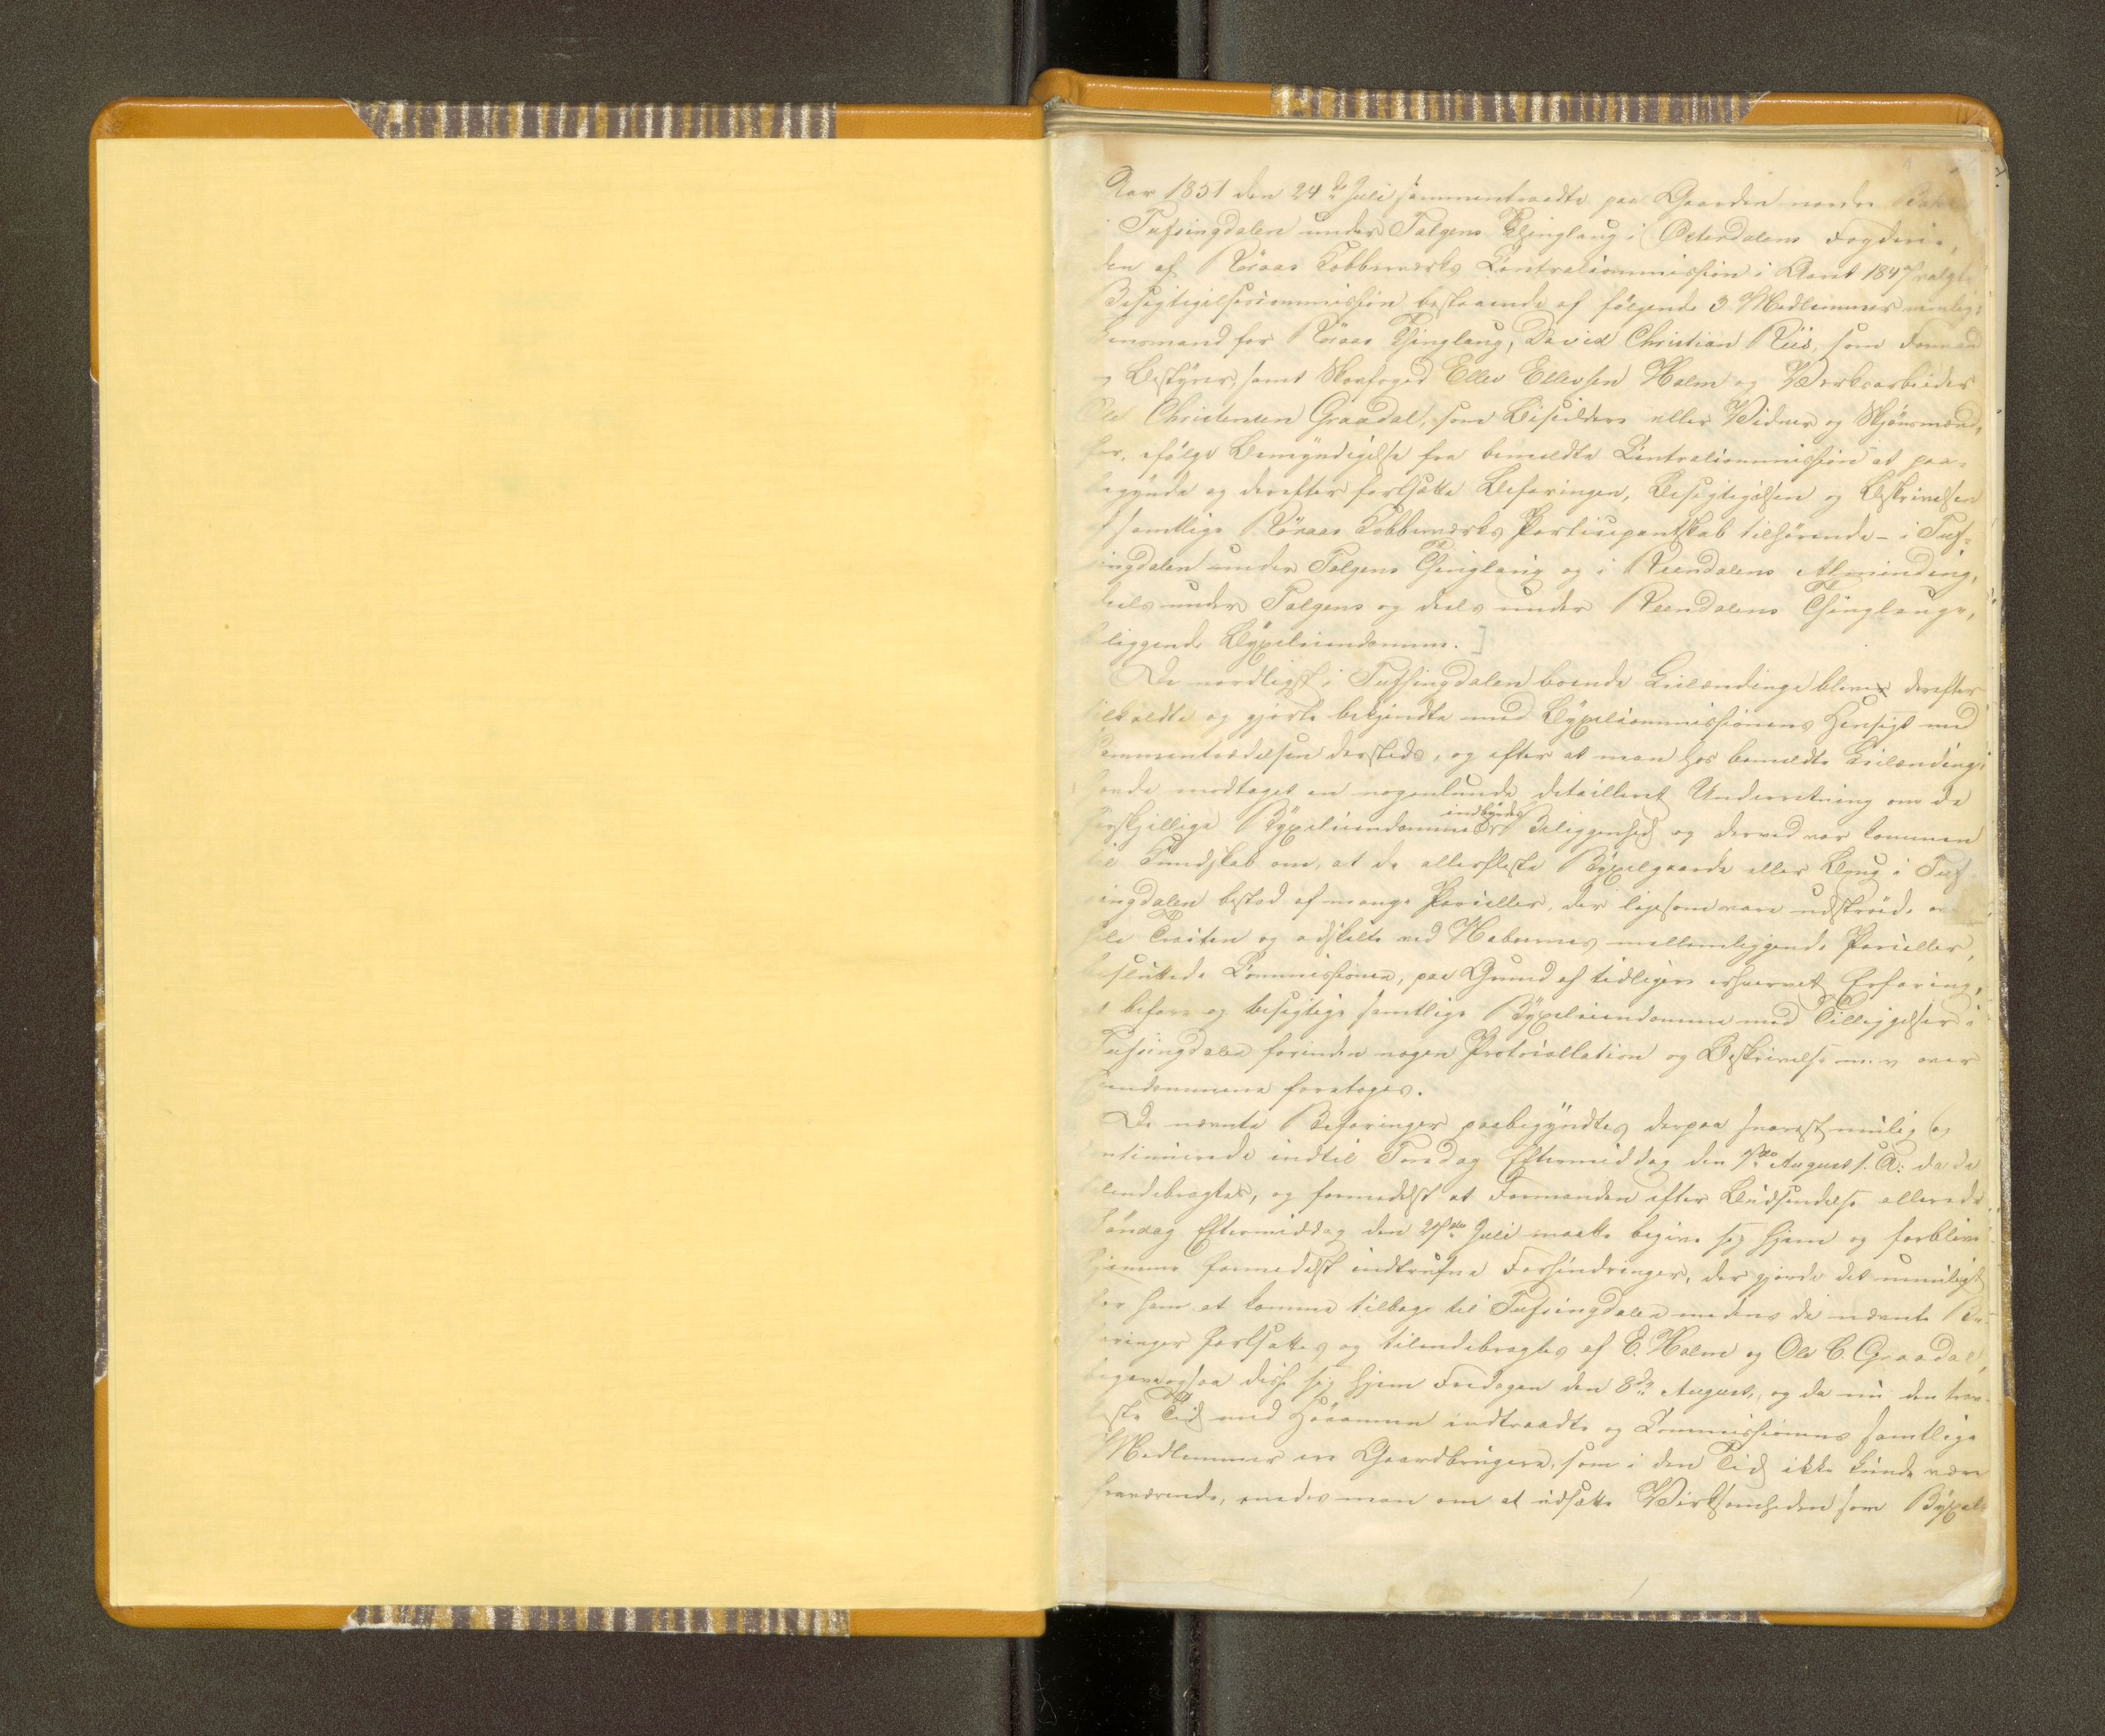 Aar 1851 den 24de Juli sammentraadte paa Gaarden nordre
i Tufsingdalen under Tolgens Thinglaug i Østerdalens Fogderie,
den af Röraas Kobberværks Centralcommission i Aaret 1847 valgte
Besigtigelsescommission bestaaende af følgende 3 Medlemmer nemlig:
Lensmand for Röraas Thinglaug, David Christian Riis, som Formand
og Bestyrer, samt Skovfoged Ellev Ellevsen Holm og Værksarbeider
Ole Christensen Graadal, som Bisiddere eller Vidner og Skjønsmænd,
for, ifølge Bemyndigelse fra bemeldte Centralcommission at paa-
begynde og derefter fortsætte Befaringen, Besigtigelsen og Beskrivelsen
af samtlige Röraas Kobberværks Participantskab tilhørende - i Tuf-
singdalen under Tolgens Thinglaug og i Reendalens Alminding,
deels under Tolgens og deels under Reendalens Thinglauge,
beliggende Bygseleiendomme. ]
De nordligst i Tufsingdalen boende Leilændinge bleve derefter
tilkaldte og gjorte bekjendte med Bygselcommissionens Hensigt med
Sammentrædelsen dersteds, og efter at man hos bemeldte Leilændinge
havde modtaget en nogenlunde detailleret Underretning om de
forskjellige Bygseleiendommes indbyrdes Beliggenhed og derved var kommen
til Kundskab om, at de allerfleste Bygselgaarde eller Brug i Tuf-
singdalen bestod af mange Parceller, der ligesom vare udstrøede over
hele Tracten og adskilte ved Naboernes mellemliggende Parceller,
besluttede Commissionen, paa Grund af tidligere erhvervet Erfaring,
at befare og besigtige samtlige Bygseleiendomme med Tilliggelser i
Tufsingdalen forinden nogen Protocollation og Beskrivelse m.v. over
Eiendommene foretoges.
De nævnte Befaringer paabegyndtes derpaa snarest mulig og
continuerede indtil Torsdag Eftermiddag den 7de August s. A: da de
tilendebragtes, og formedelst at Formanden efter Budsendelse allerede
Søndag Eftermiddag den 27de Juli maatte begive sig hjem og forblive
hjemme formedelst indtrufne Forhindringer, der gjorde det umuligt
for ham at komme tilbage til Tufsingdalen medens de nævnte Be-
faringer fortsattes og tilendebragtes af E. Holm og Ole C. Graadal,
begave ogsaa disse sig hjem Fredagen den 8de August, og da nu den trav-
leste Tid med Høaannen indtraadte og Commissionens samtlige
Medlemmer ere Gaardbrugere, som i den Tid ikke kunde være
fraværende, enedes man om at udsætte Virksomheden som Bygsel-